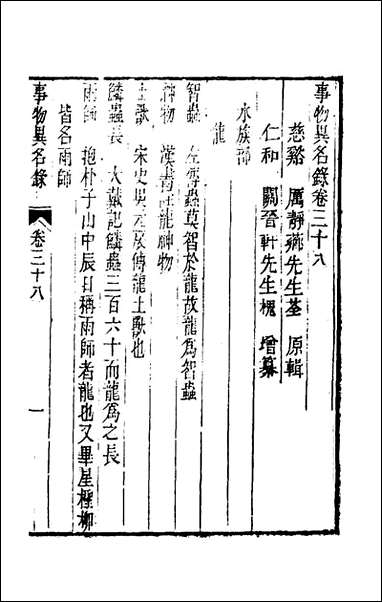 事物異名錄卷三十八
慈谿 厲靜薌先生荃 原輯
仁和 關晉軒先生槐 增纂
水族部
龍
智蟲 左傳蟲莫智於龍故龍爲智蟲
神物 漢書註龍神物
土獸 宋史吳元扆傳龍土獸也
鱗蟲長 大戴記鱗蟲三百六十而龍爲之長
雨師 抱朴子山中辰日稱雨師者龍也又畢星檉柳
皆名雨師
事物異名錄 卷三十八 一